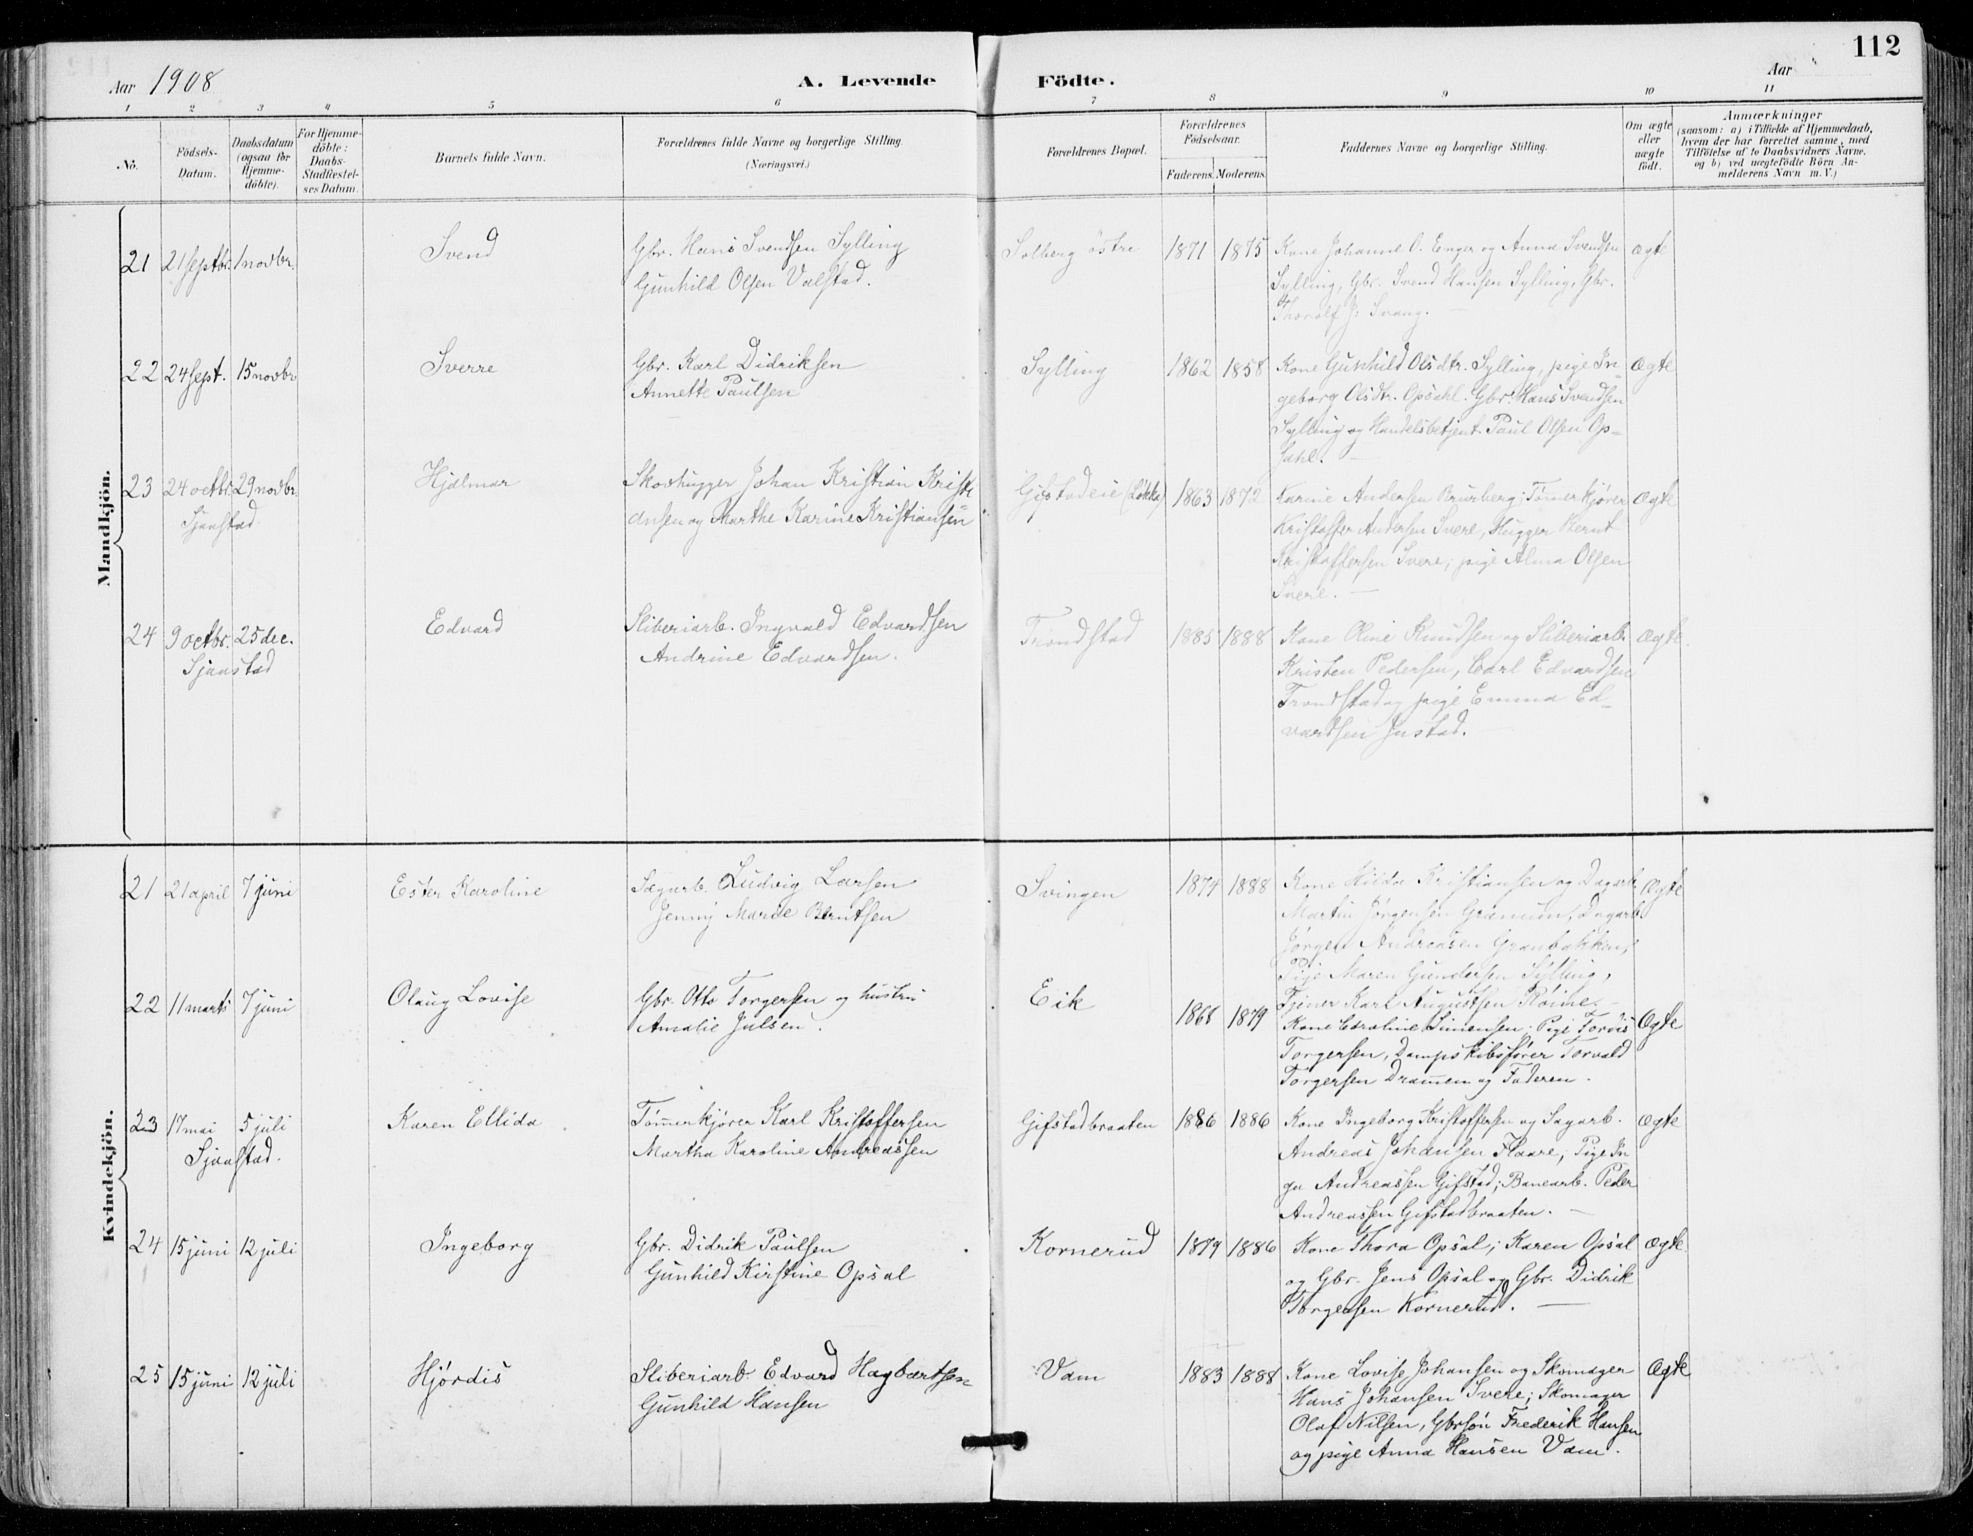 112
Aar 1908
A. Levende
Födte.
Aar
1 2 3 4 5 6 7 8 9 10 11
No.
Födsels-
Datum.
Daabsdatum
(ogsaa for
Hjemme-
döbte).
For Hjemme-
döbte:
Daabs-
Stadfæstel-
ses Datum.
Barnets fulde Navn.
Forældrenes fulde Navne og borgerlige Stilling.
(Næringsvei.)
Forældrenes Bopæl.
Forældrenes
Födselsaar.
Faderens. Moderens.
Faddernes Navne og borgerlige Stilling.
Om ægte
eller
uægte
født.
Anmærkninger
(saasom: a) i Tilfælde af Hjemmedaab,
hvem der har forrettet samme, med
Tilföielse af to Daabsvidners Navne,
og b) ved uægtefödte Börn An-
melderens Navn m. V.)
Mandkjön.
21 21 septbr. 1 novbr. Svend
Gbr. Hans Svendsen Sylling
Gunhild Olsen Valstad.
Solberg östre 1871 1875
Kone Johanne O. Enger og Anna Svendsen
Sylling, Gbr. Svend Hansen Sylling, Gbr.
Thorolf J. Svang.
Ægte
22 24 sept. 15 novbr Sverre
Gbr. Karl Didriksen
Annette Paulsen
Sylling 1862 1858
Kone Gunhild Olsdtr. Sylling, pige In-
geborg Olsdtr. Opsahl. Gbr. Hans Svendsen
Sylling og Handelsbetjent Paul Olsen Op-
sahl.
Ægte
23 24 octbr. 29 novbr. Hjalmar
Sjaastad.
Skovhugger Johan Kristian Kristi
ansen og Marthe Karine Kristiansen
Gifstadeie (Løkka) 1863 1872
Karine Andersen Brurberg; Tømerkjører
Kristoffer Andersen Svere, Hugger Bernt
Kristoffersen Svere; pige Alma Olsen
Svere.
Ægte
24 9 octbr. 25 dec. Edvard
Sjaastad
Sliberiarb. Ingvald Edvardsen
Andrine Edvardsen.
Trondstad 1885 1888
Kone Oline Knudsen og Sliberiarb.
Kristen Pedersen, Carl Edvardsen
Trondstad og pige Emma Ed-
vardsen Justad.
Ægte
Kvindekjön.
21 21 april 7 juni Ester Karoline
Sagarb. Ludvig Larsen
Jenny Marie Berntsen
Svingen 1874 1888
Kone Hilda Kristiansen og Dagarb.
Martin Jørgensen Grønum, Dagarb.
Jørgen Andreasen Granbakken,
Pige Maren Gundersen Sylling,
Tjener Karl Augustsen
Ægte
22 11 marts 7 juni Olaug Lovise
Gbr. Otto Torgersen og hustru
Amalie Julsen.
Eik 1868 1879
Kone Caroline Simensen; Pige Torvis
Torgersen, Dampskibsfører Torvald
Torgersen Dramen og Faderen.
Ægte
23 17 mai 5 juli Karen Ellida
Sjaastad.
Tømerkjører Karl Kristoffersen
Martha Karoline Andreassen
Gifstadbraaten 1886 1886
Kone Ingeborg Kristoffersen og Sagarb.
Andreas Johansen Flaare; Pige In
ga Andreassen Gifstad; Banearb. Peder
Andreassen Gifstadbraaten.
Ægte
24 15 juni 12 juli Ingeborg
Gbr. Didrik Paulsen
Gunhild Kirstine Opsal
Kornerud 1879 1886
Kone Thora Opsal; Karen Opsal
og Gbr. Jens Opsal og Gbr. Didrik
Torgersen Kornerud.
Ægte
25 15 juni 12 juli Hjørdis
Sliberiarb Edvard Hagbartsen
Gunhild Hansen
Vam 1883 1888
Kone Lovise Johansen og Skomager
Hans Johansen Svere; Skomager
Olaf Nilsen, Gbrsøn Frederik Hansen
og pige Anna Hansen Vam.
Ægte